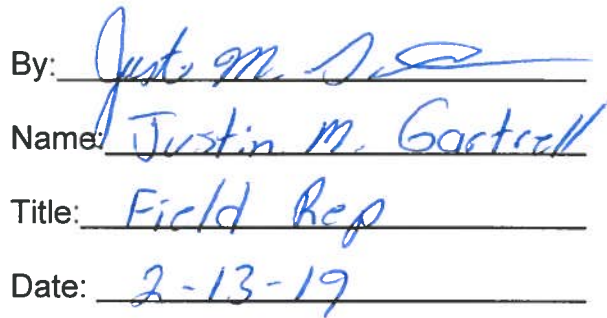 By: Justin M. 
Name: Justin M. Gartrell
Title: Field Rep
Date: 2-13-19